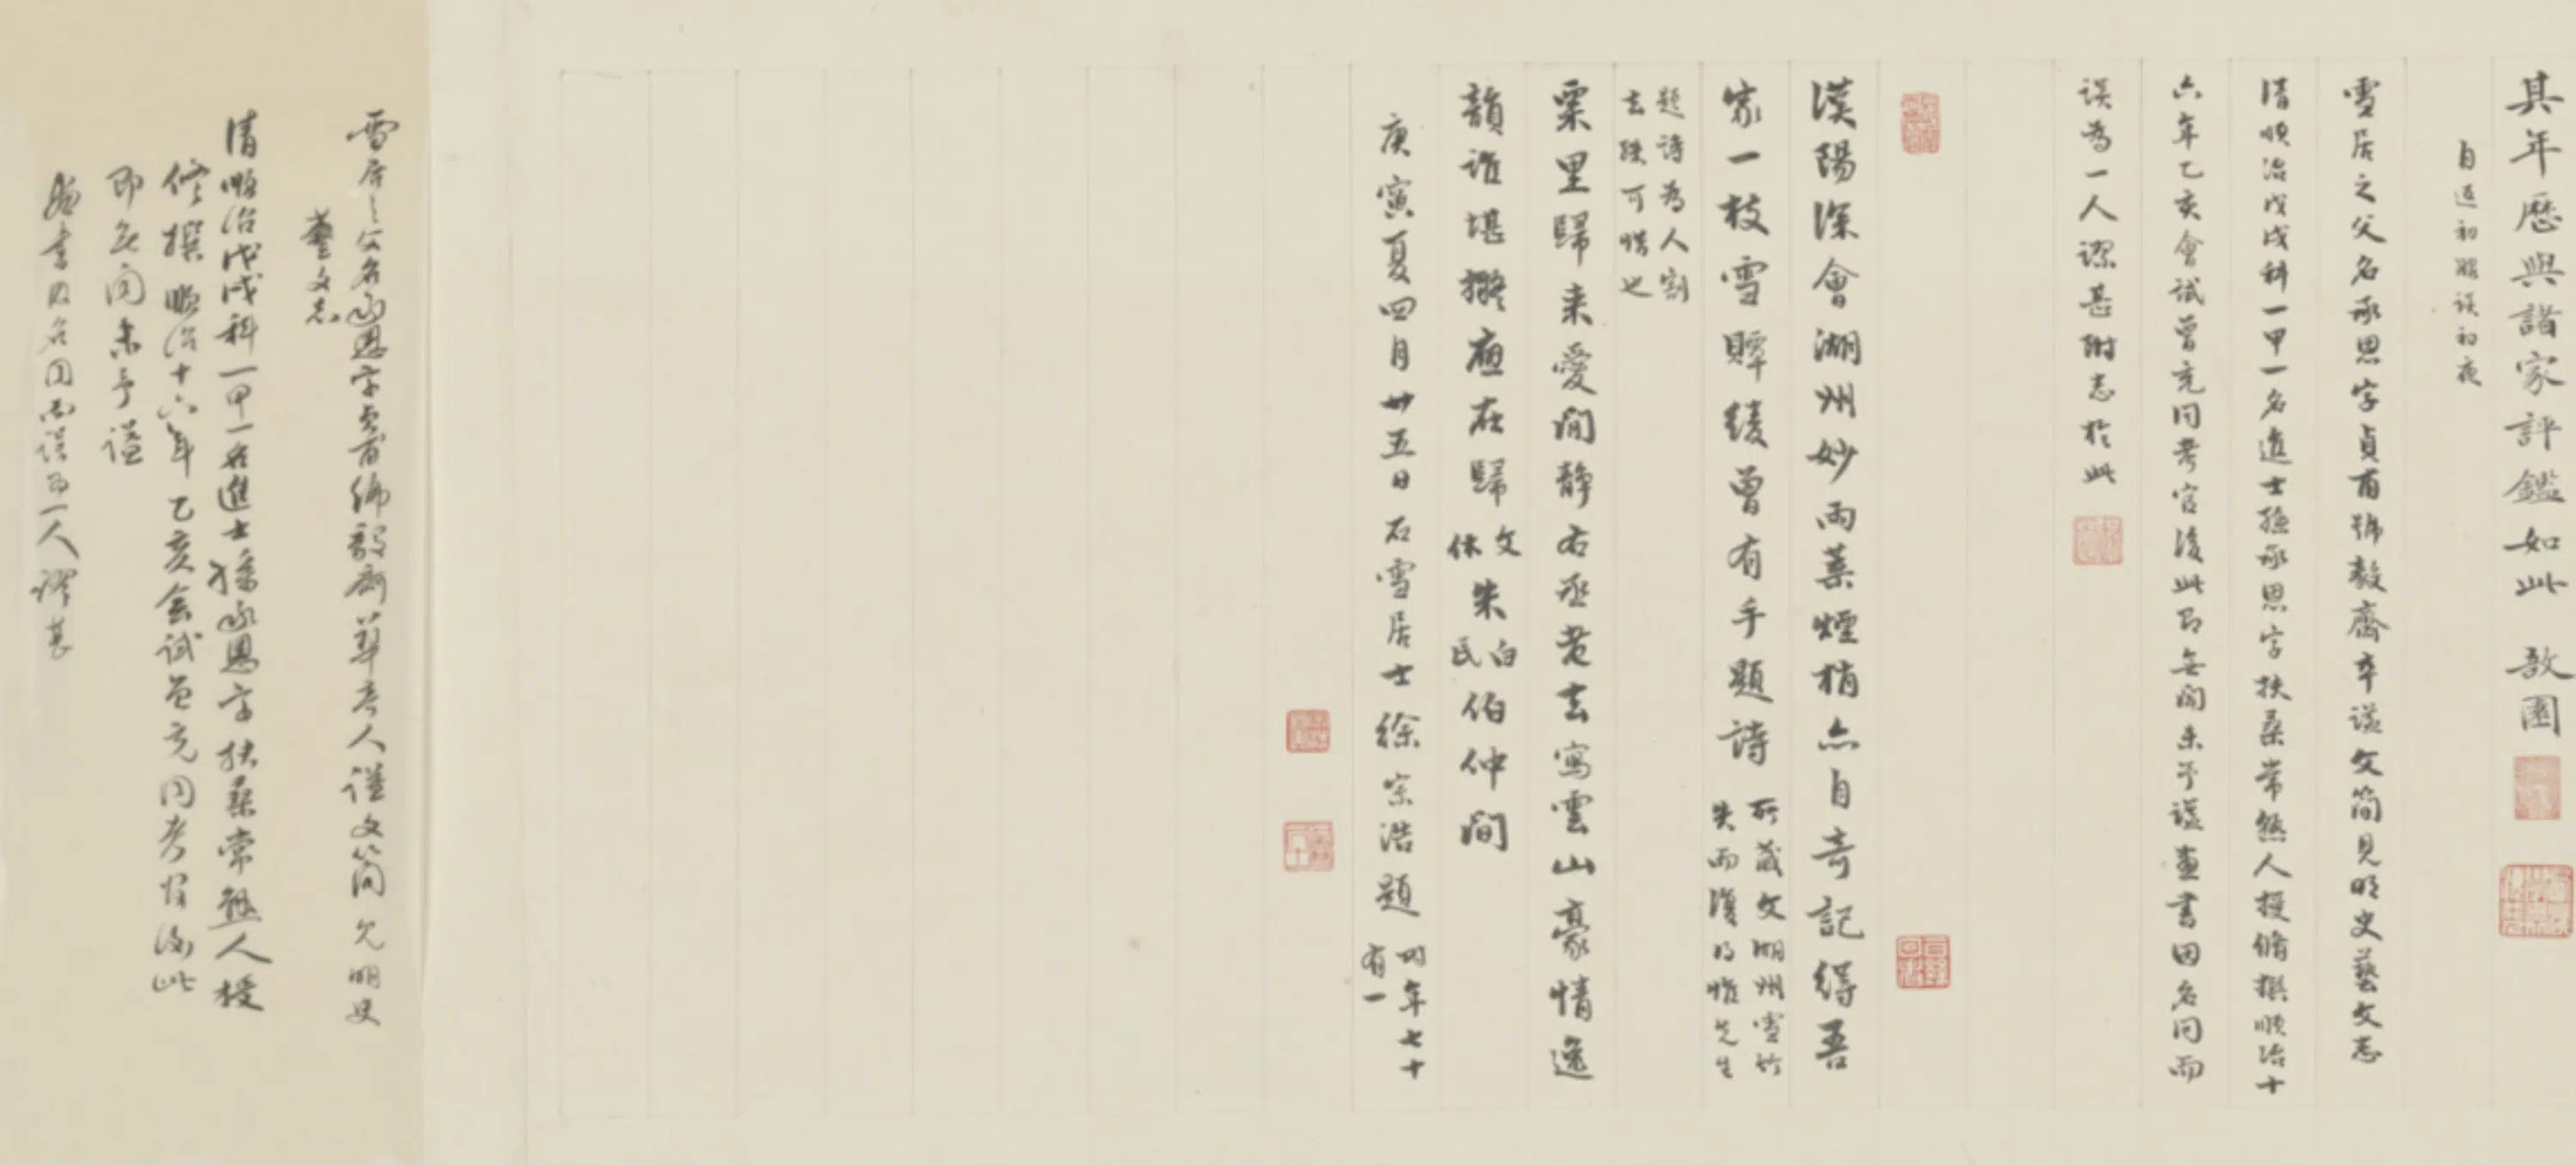 其年歷與諸家評鑑如此 敬圃
自近初雕誤初夜
雪居之父名承恩字貞甫號毅齋卒謚文簡見明史藝文志
清順治戊戌科一甲一名進士孫承恩字扶桑常熟人授脩撰順治十
六年乙亥會試曾充同考官後此即無聞未予謚畫書因名同而
誤為一人謬甚附志於此
漢陽深會湖州妙雨葉煙梢亦自奇記得吾
家一枝雪賸縑曾有手題詩 所藏文湖州雪竹
失而復得惟先生
題詩為人割
去殊可惜也
栗里歸來愛閒靜右丞老去寫雲山豪情逸
韻誰堪擬應在歸文休朱白民伯仲間
庚寅夏四月廿五日石雪居士徐宗浩題 時年七十
有一
雪居之父名承恩字貞甫號毅齋華亭人謚文簡見明史
藝文志
清順治戊戌科一甲一名進士孫承恩字扶桑常熟人授
修撰順治十六年乙亥會試曾充同考官後此
即無聞未予謚
畫書因名同而誤為一人謬甚